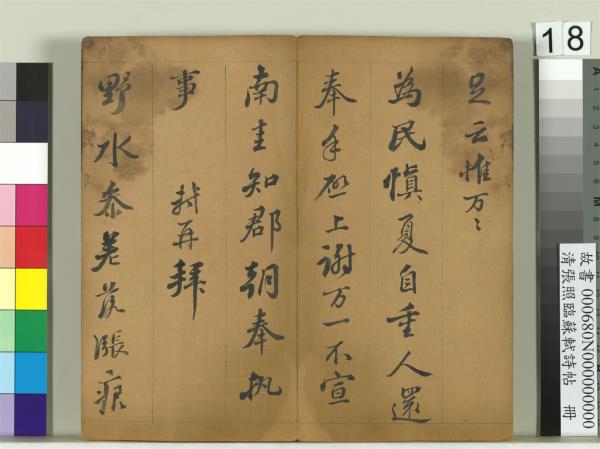 足云惟万〻
為民慎夏自重人還
奉手啓上謝万一不宣
南圭知郡朝奉執
事 軾再拜
野水泰差落漲痕
18
故書 000680N000000000
清張照臨蘇軾詩帖 冊